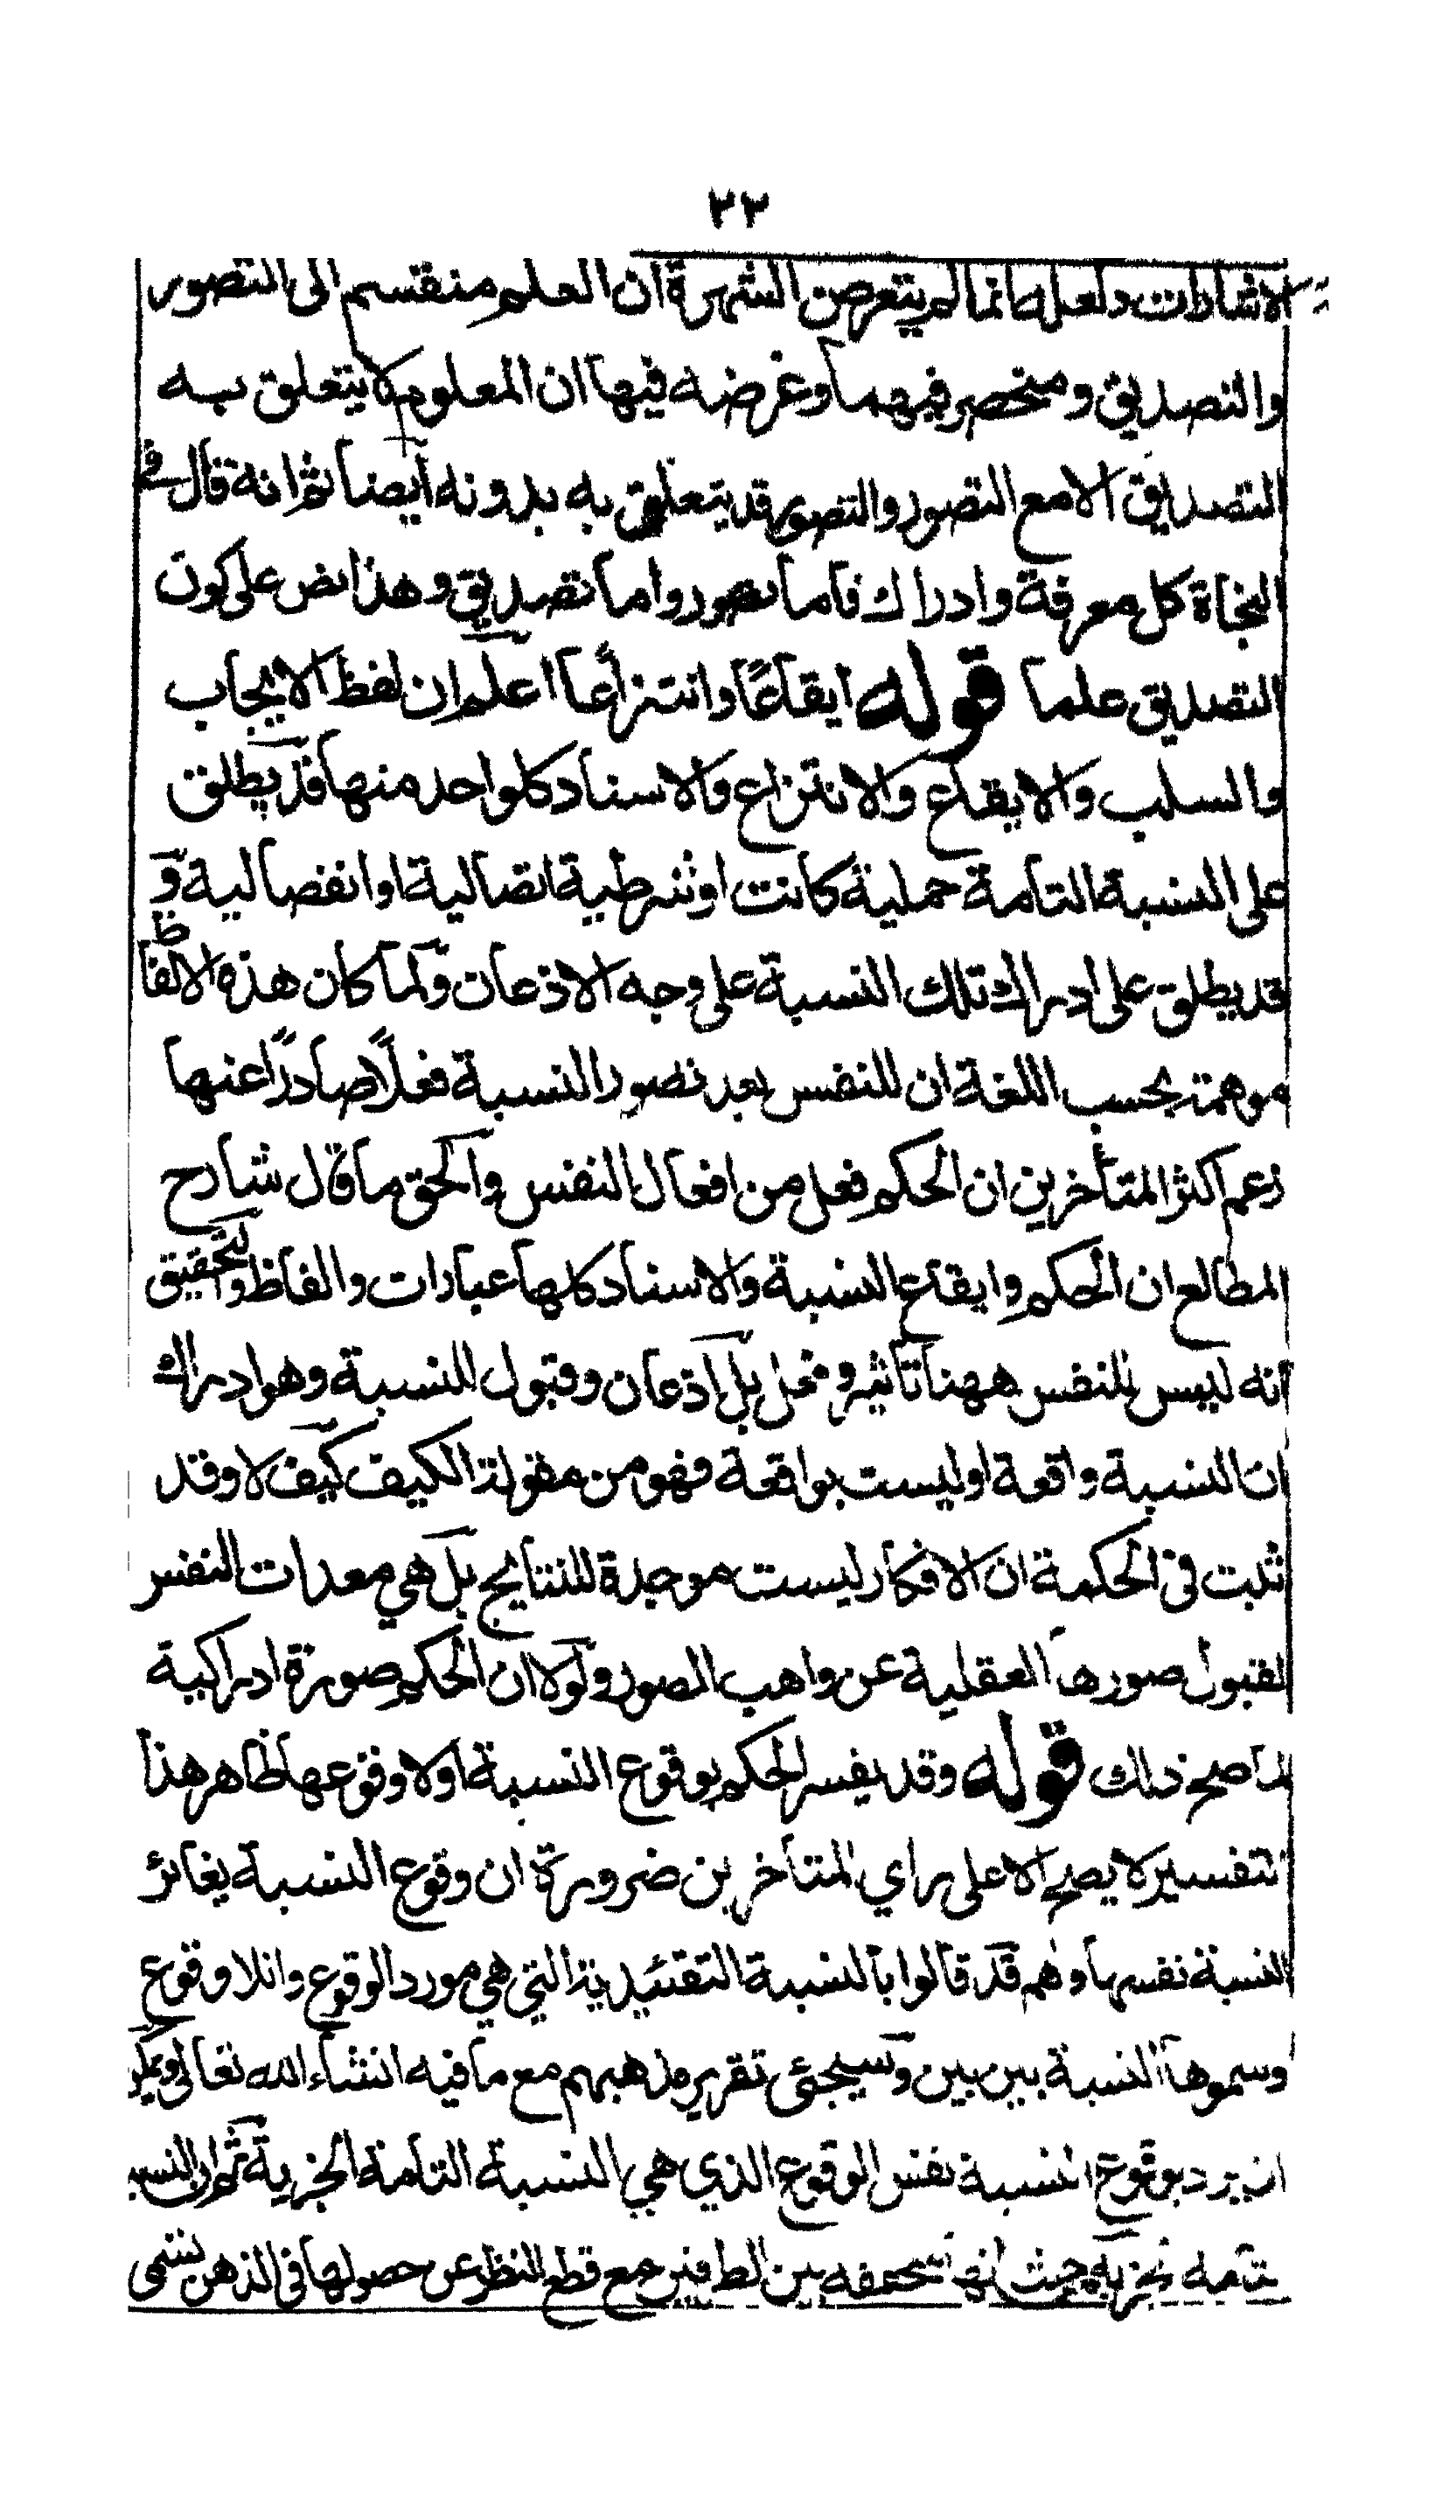 ٢٢
الاشارات ولعله انما لم يتعرض الشهرة ان العلم منقسم الى التصور
والتصديق ومنحصر فيهما وغرضه فيها ان المعلوم لا يتعلق به
التصديق الا مع التصور والتصور قد يتعلق به بدونه ايضا ثم انه قال في
النجاة كل معرفة وادراك فاما تصور واما تصديق وهذا نص على كون
التصديق علما قوله ايقاعًا وانتزاعا اعلم ان لفظ الايجاب
والسلب والايقاع والانتزاع والاسناد كلواحد منها قد يطلق
على النسبة التامة حملية كانت او شرطية اتصالية او انفصالية و
قد يطلق على ادراك تلك النسبة على وجه الاذعان ولما كان هذه الالفاظ
موهمة بحسب اللغة ان للنفس بعد تصور النسبة فعلًا صادرًا عنها
زعم اكثر المتأخرين ان الحكم فعل من افعال النفس والحق ما قال شارح
المطالع ان الحكم وايقاع النسبة والاسناد كلها عبارات والفاظ والتحقيق
انه ليس للنفس ههنا تأثير وفعل بل اذعان وقبول للنسبة وهو ادراك
ان النسبة واقعة او ليست بواقعة فهو من مقولة الكيف كيف لا وقد
ثبت في الحكمة ان الافكار ليست موجدة للنتايج بل هي معدات النفس
لقبول صورها العقلية عن واهب الصور ولولا ان الحكم صورة ادراكية
لما صح ذلك قوله وقد يفسر الحكم بوقوع النسبة اولا وقوعها ظاهر هذا
التفسير لا يصح الا على راي المتأخرين ضرورة ان وقوع النسبة يغائر
النسبة نفسها وهم قد قالوا بالنسبة التقئيدية التي هي مورد الوقوع واللاوقوع
وسموها النسبة بين بين وسيجئ تقرير مذهبهم مع ما فيه انشاء الله تعالى ويمكن
ان يرد بوقوع النسبة نفس الوقوع الذي هي النسبة التامة الخبرية ثم ان النسبة
من حيث انها متحققه بين الطرفين مع قطع النظر عن حصولها في الذهن تسمى